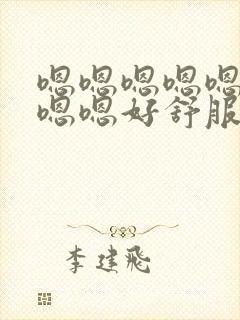 嗯嗯嗯嗯嗯
嗯嗯好舒服
李建飞